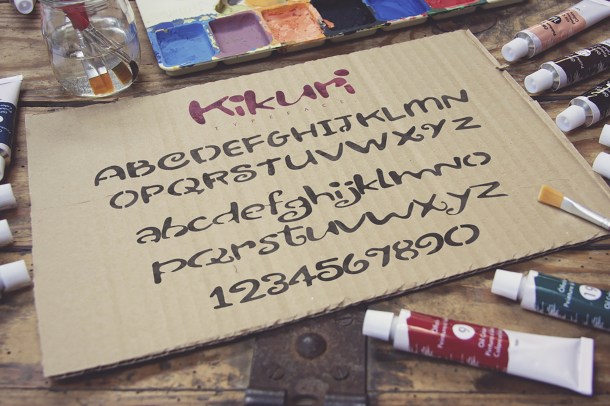 Kikuri
TYPEFACE
ABCDEFGHIJKLMN
OPQRSTUVWXYZ
abcdefghijklmno
pqrstuvwxyz
1234567890
19
9